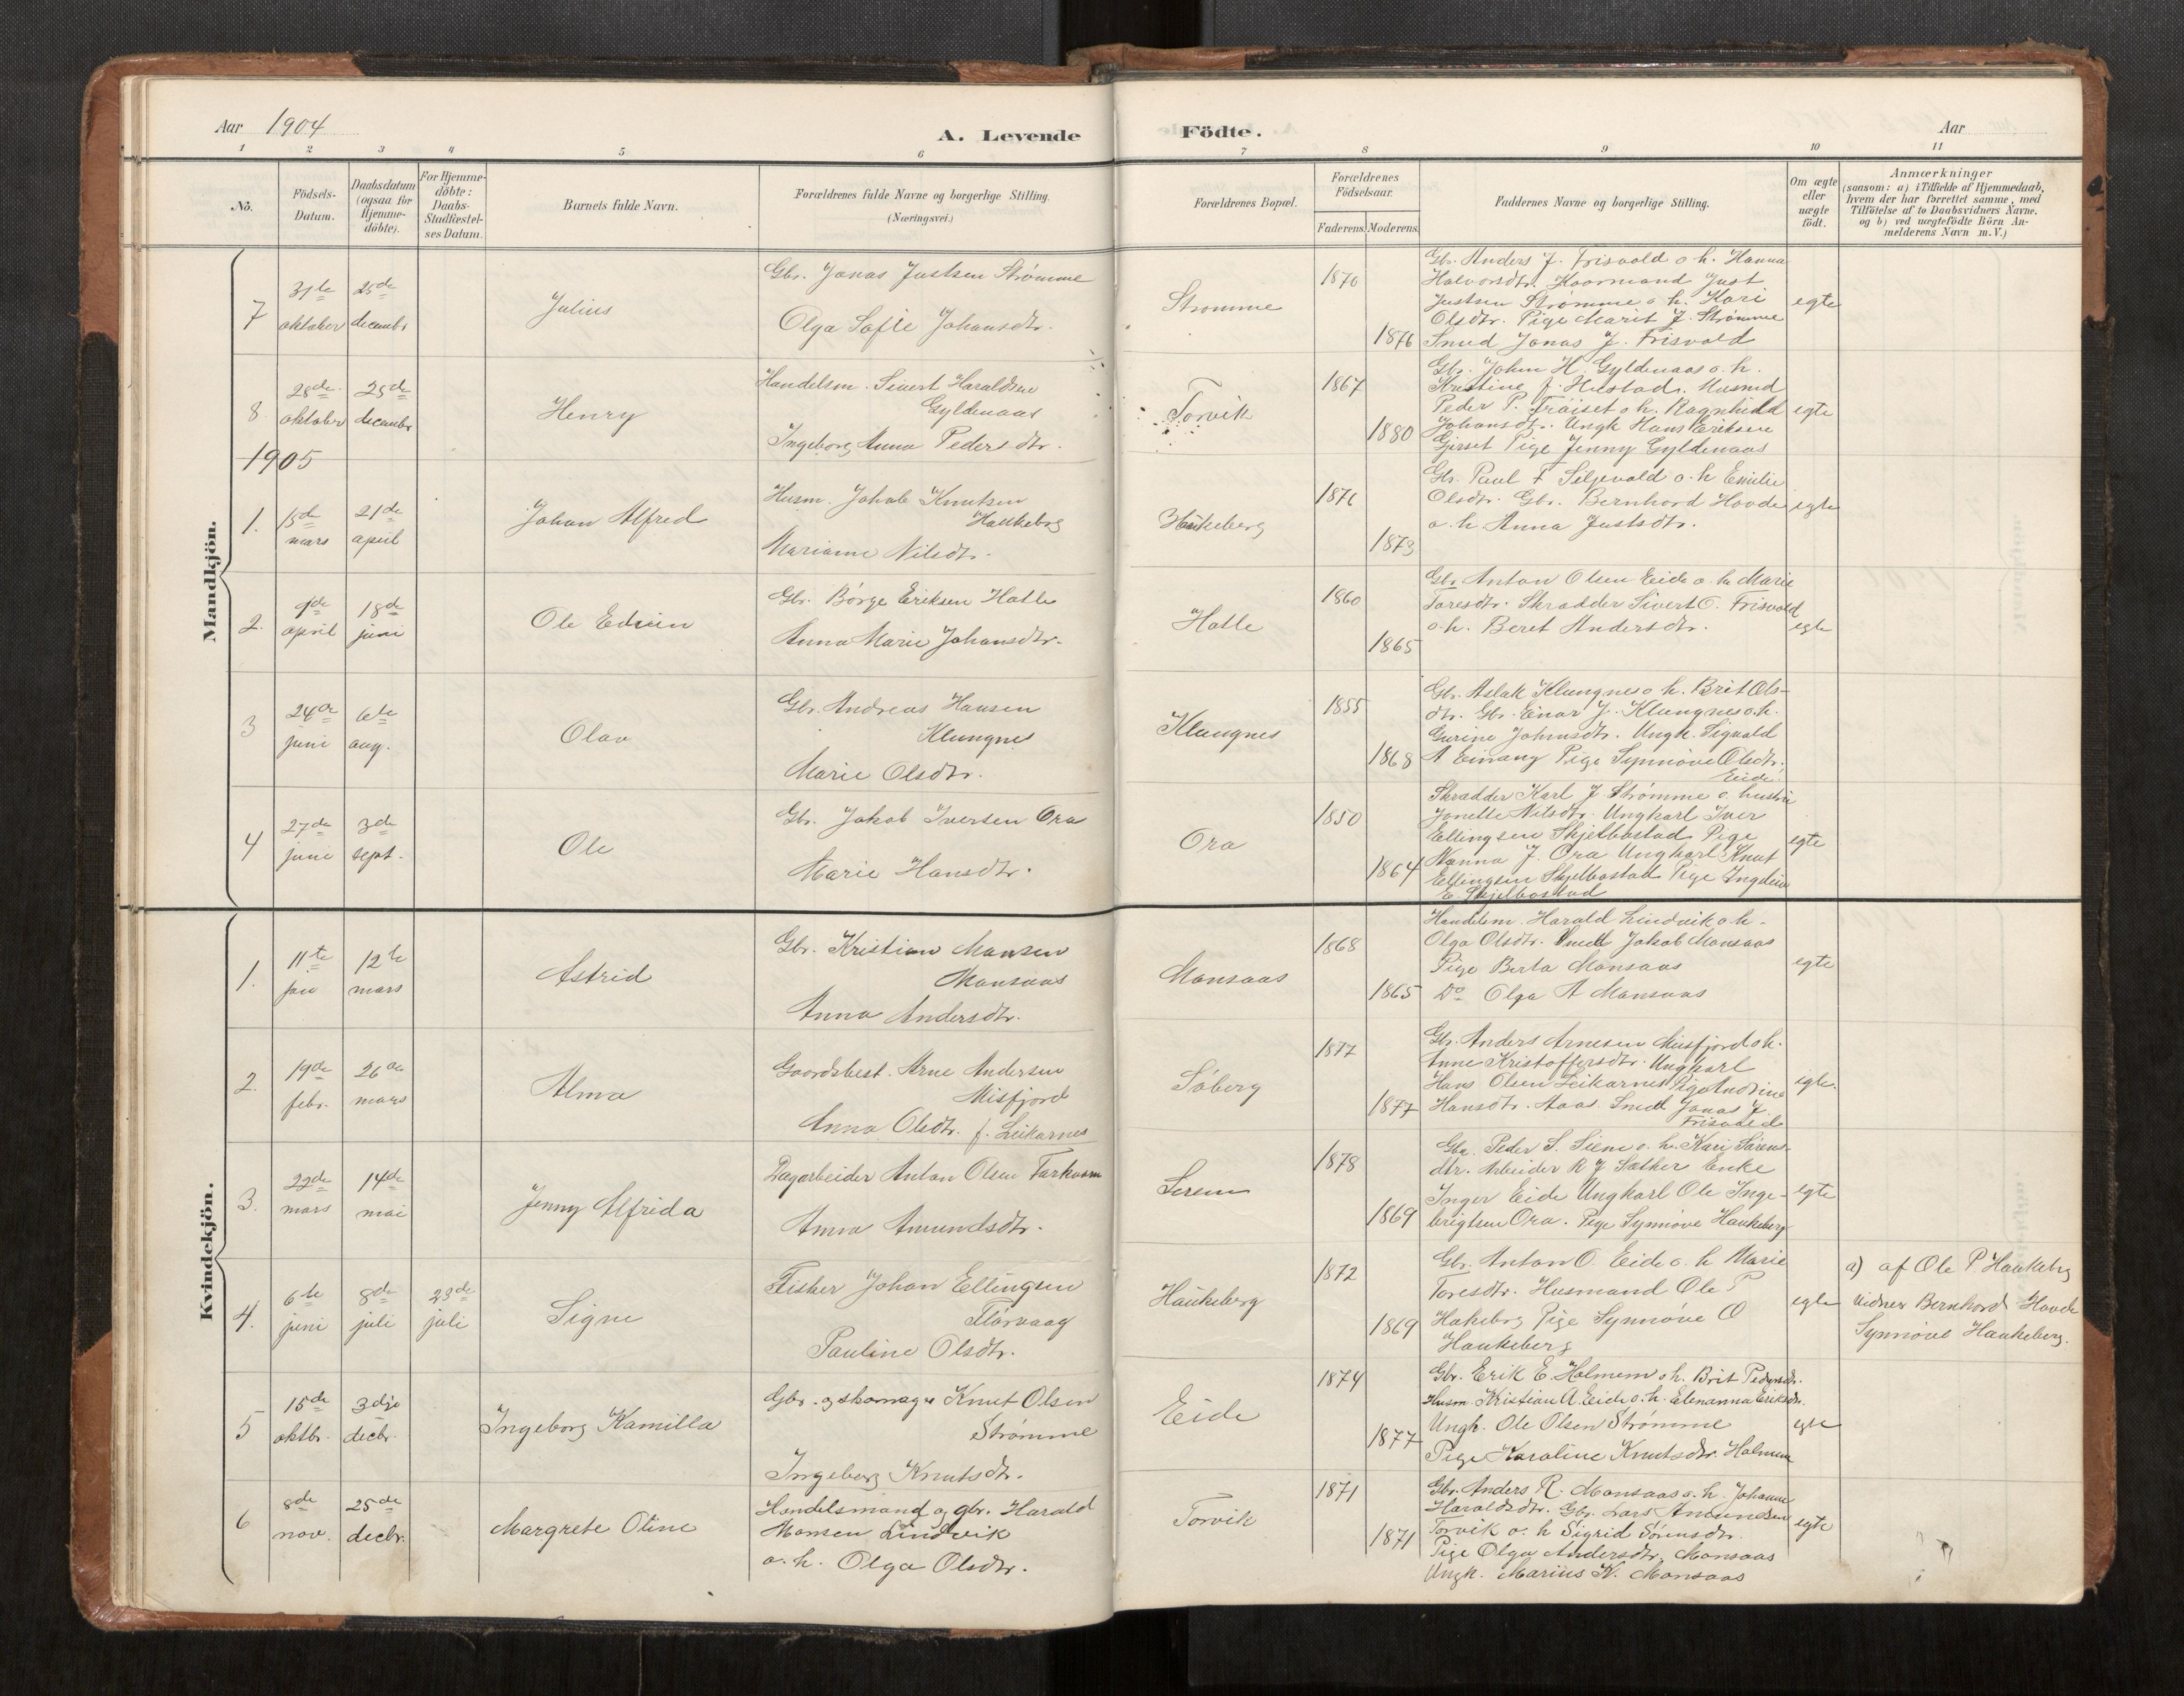 Aar 1904
A. Levende Födte.
Aar
1 2 3 4 5 6 7 8 9 10 11
No.
Födsels-Datum.
Daabsdatum (ogsaa for Hjemme-döbte).
For Hjemme-döbte: Daabs-Stadfæstel-ses Datum.
Barnets fulde Navn.
Forældrenes fulde Navne og borgerlige Stilling.
(Næringsvei.)
Forældrenes Bopæl.
Forældrenes Födselsaar.
Faderens. Moderens.
Faddernes Navne og borgerlige Stilling.
Om ægte eller uægte födt.
Anmærkninger
(saasom: a) i Tilfælde af Hjemmedaab,
hvem der har forrettet samme, med
Tilföielse af to Daabsvidners Navne.
og b) ved uægtefödte Börn An-
melderens Navn m. V.)
Mandkjön.
7 31te oktober 25de decembr
Julius
Gbr. Jonas Justsen Strømme
Olga Sofie Johansdtr.
Strømme
1870
1876
Gbr. Anders J. Frisvold o. h. Hanna
Halvorsdtr. Kaarmand Just
Justsen Strømme o. h. Kari
Olsdtr. Pige Marit J. Strømme
Smed Jonas J. Frisvold
egte
8. 28de oktober 25de decembr
Henry
Handelsm. Sivert Haraldsen
Gyldenaas
Ingeborg Anna Pedersdtr.
Torvik
1867
1880
Gbr. John H. Gyldenaas o. h.
Kristine f. Hustad. Husmd
Peder P. Frøiset o. h. Ragnhild
Johansdtr. Ungk Hans Eriksen
Gjerset Pige Jenny Gyldenaas
egte
1905
1. 15de mars 21de april
Johan Alfred
Husm. Jakob Knutsen
Haukeberg
Marianne Nilsdtr.
Haukeberg
1876
1873
Gbr. Paul F Silgevald o. h Emilie
Olsdtr. Gbr. Bernhard Hovde
o. h. Anna Justsdtr.
egte
2. 9de april 18de juni
Ole Edvin
Gbr. Børge Eriksen Hatle
Anna Marie Johansdtr.
Hatle
1860
1865
Gbr Anton Olsen Eide o. h. Marie
Toresdtr. Skrædder Sivert O. Frisvold
o. h. Beret Andersdtr.
egte
3 24de juni 6te aug.
Olav
Gbr. Andreas Hansen
Klungnes
Marie Olsdtr.
Klungnes
1855
1868
Gbr. Aslak Klungnes o h. Brit Ols-
dtr. Gbr. Einar J. Klungnes o. h.
Gurine Johnsdtr. Ungk. Sigvald
A Einang Pige Synnøve Olsdtr.
Eide.
4 27de juni 3de sept.
Ole
Gbr. Jakob Iversen Ora
Marie Hansdtr.
Ora
1850
1864
Skrædder Karl J Strømme o. hustru
Jonette Nilsdtr. Ungkarl Iver
Ellingsen Skjelbostad Pige
Hanna J. Ora Ungkarl Knut
Ellingsen Skjelbostad Pige
E. Skjelbostad
egte
Kvindekjön.
1. 11te jan 12te mars
Astrid
Gbr. Kristian Monsen
Monsaas
Anna Andersdtr.
Monsaas
1868
1865
Handelsm. Harald Lindvik o h.
Olga Olsdtr. Smed Jakob Monsaas
Pige Berta Monsaas
Do Olga A Monsaas
egte
2. 19de febr. 26de mars
Alma
Gaardsbest. Arne Andersen
Misfjord
Anna Olsdtr. f. Leikarnes
Søberg
1877
1877
Gbr. Anders Arnesen Misfjord o h.
Anne Kristoffersdtr. Ungkarl
Hans Olsen Leikarnes Pige Andrine
Hansdtr. Aaas. Smed Jonas J.
Frisvold
egte.
3. 22de mars 14de mai
Jenny Alfrida
Dagarbeider Anton Olsen Farkvam
Anna Amundsdtr.
Serem
1878
1869
Gbr. Peder S. Siem o. h. Kari Sørens-
dtr. Arbeider R J Sæther Enke
Inger Eide Ungkarl Ole Inge-
brigtsen Ora. Pige Synnøve Haukeberg
egte
4. 6te juni 8de juli 23de juli
Signe
Fisker Johan Ellingsen
Flørvaag
Pauline Olsdtr.
Haukeberg
1872
1869
Gbr. Anton O. Eide o. h Marie
Toresdtr. Husmand Ole P
Hakebrg Pige Synnøve O
Haukeberg
egte
a) af Ole P. Haukebrg
Vidner Bernhard Hovde
Synnøve Haukeberg.
5 15de oktbr. 3dje decbr.
Ingeborg Kamilla
Gbr. og skomager Knut Olsen
Strømme
Ingeborg Knutsdtr.
Eide
1874
1877
Gbr. Erik E. Holmem o h. Brit Pedersdtr.
Husm. Kristian A. Eide o. h. Elenanna Eriksdtr.
Ungk. Ole Olsen Strømme
Pige Karoline Knutsdtr. Holmem
egte
6 8de nov. 25de decbr.
Margrete Oline
Handelsmand og gbr. Harald
Monsen Lindvik
o. h. Olga Olsdtr.
Torvik
1871
1871
Gbr. Anders R. Monsaas o. h. Johanne
Haraldsdtr. Gbr. Lars Amundsen
Torvik o. h Sigrid Sørensdtr.
Pige Olga Andersdtr. Monsaas
Ungk. Marius K. Monsaas
egte